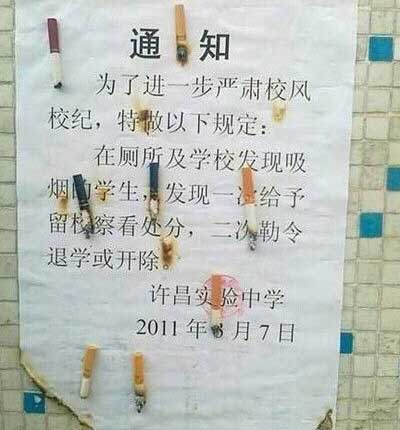 通知
为了进一步严肃校风
校纪，特做以下规定：
在厕所及学校发现吸
烟的学生，发现一次给予
留校察看处分，二次勒令
退学或开除。
许昌实验中学
2011年 月7日